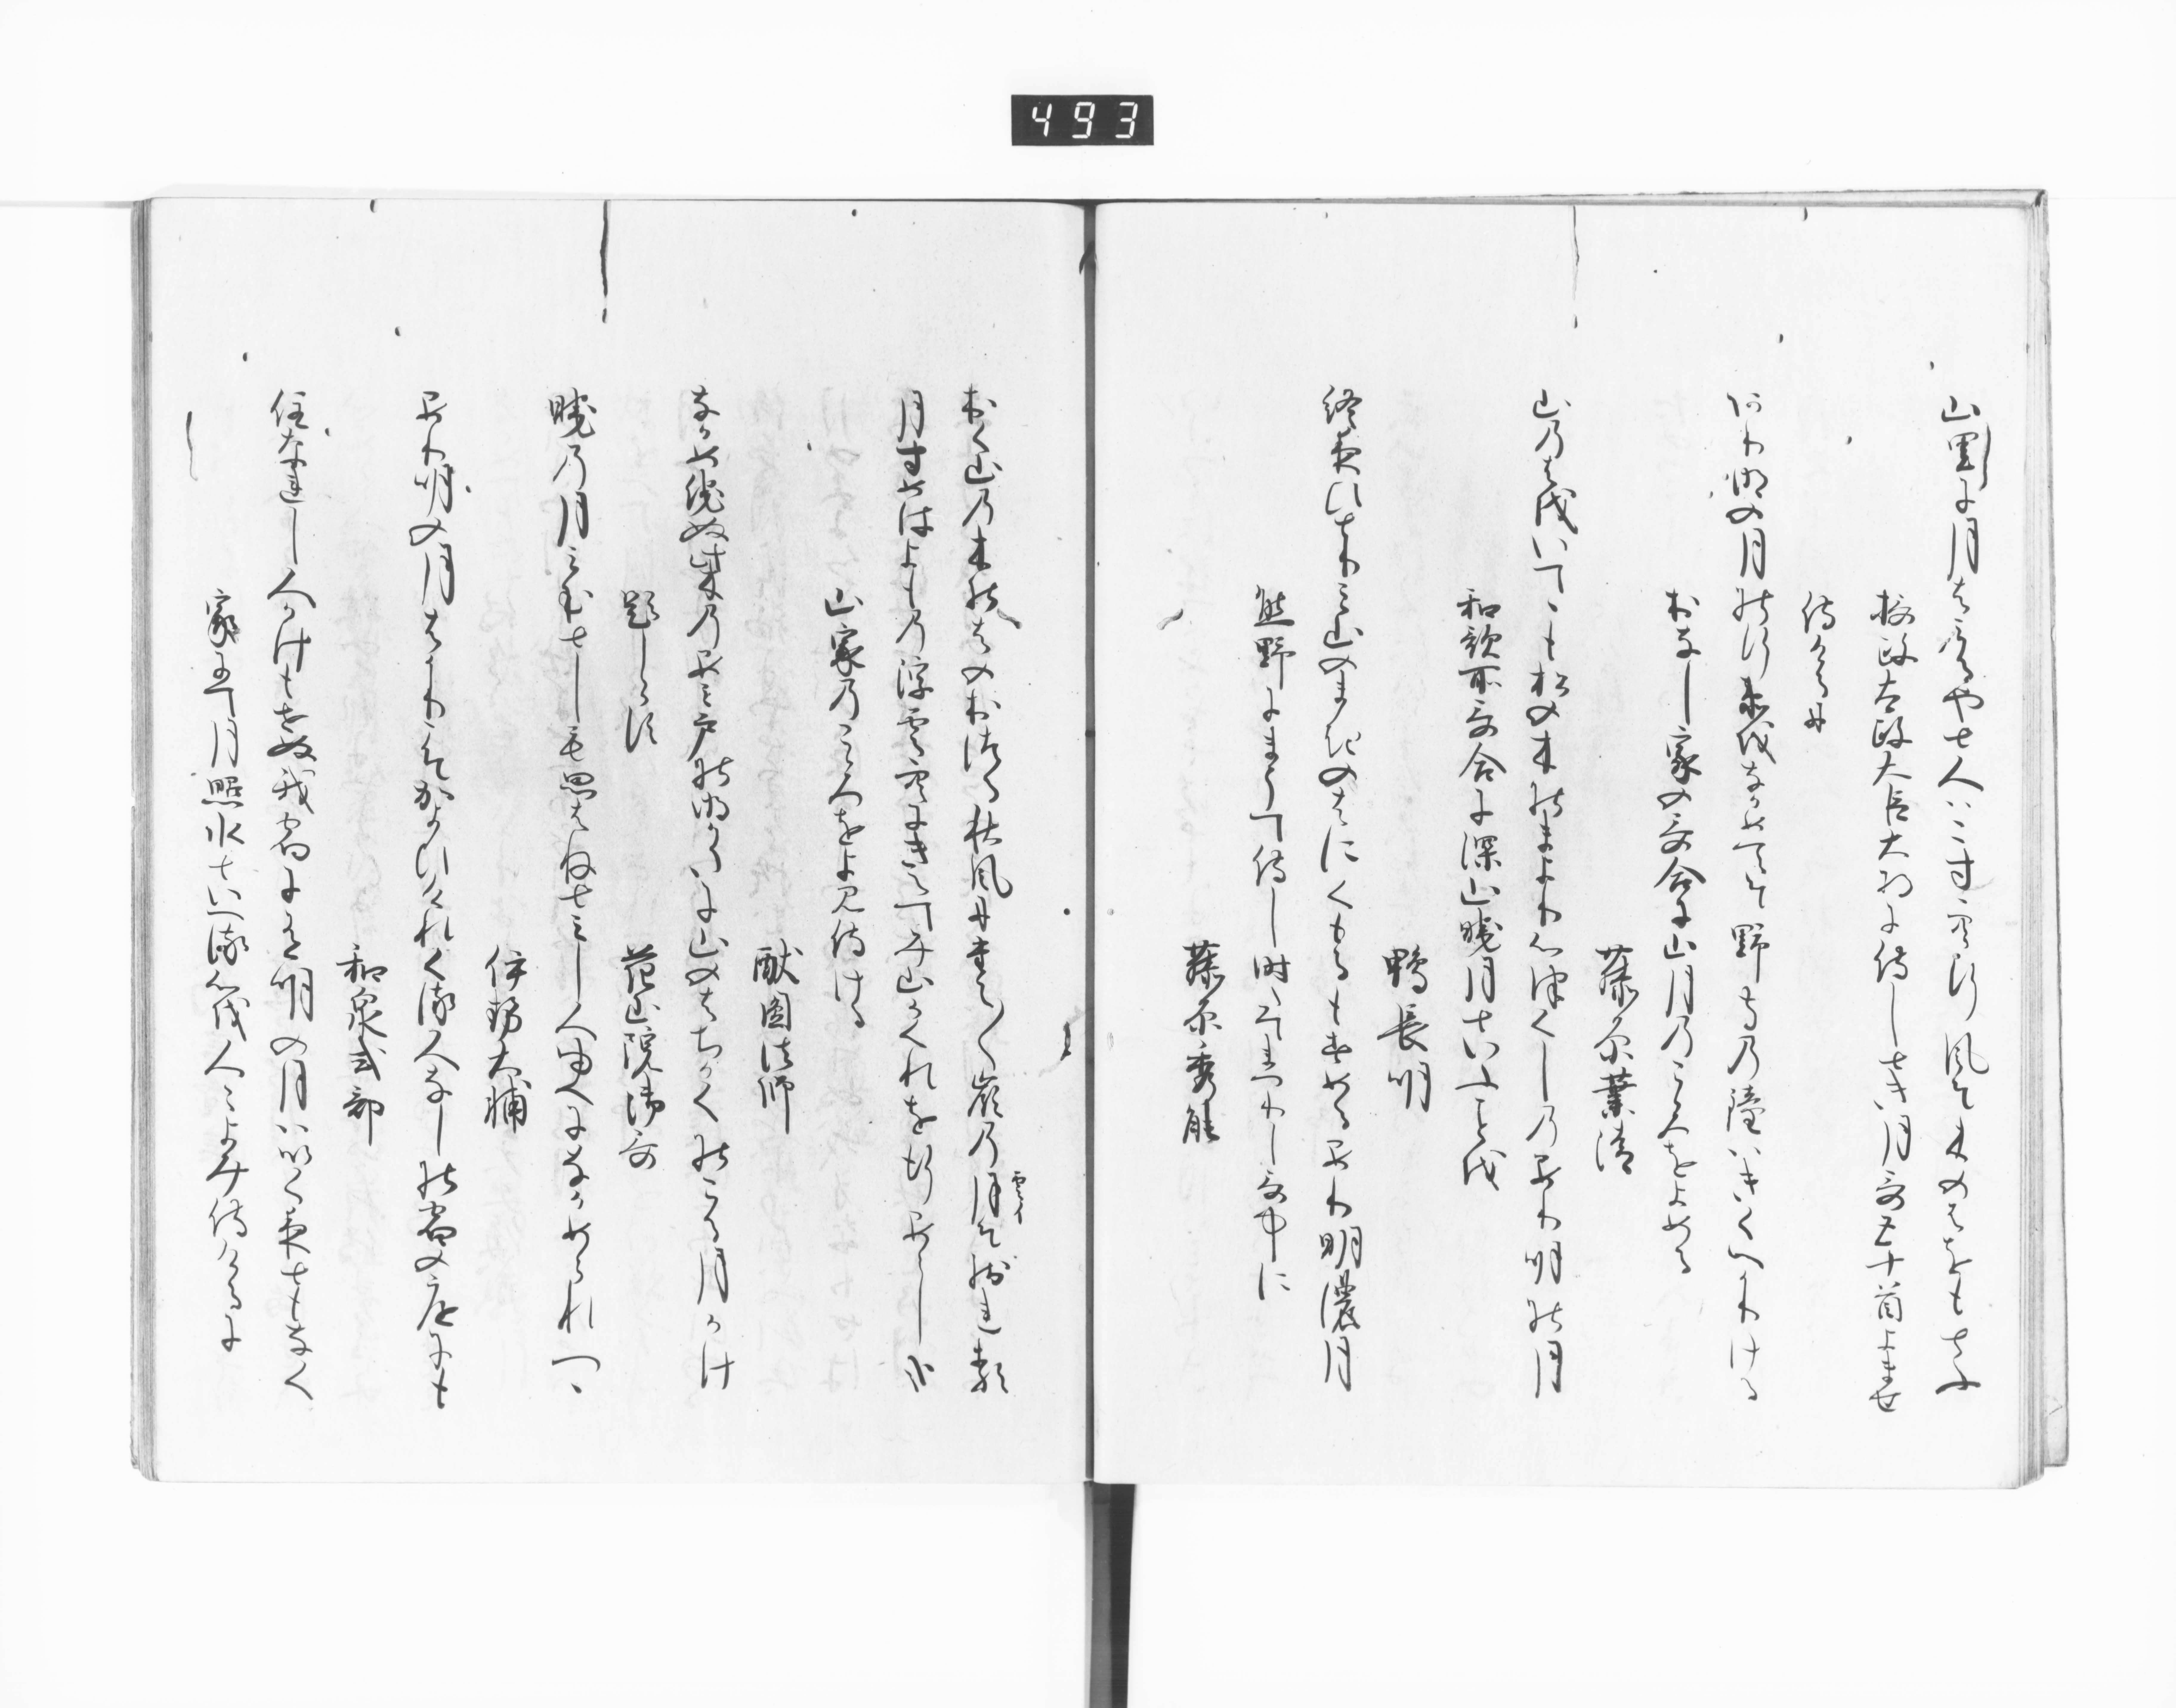 山里に月はみるやと人はこす空行風そ木のはをもとふ
摂政太政大臣大将に侍し時月哥五十首よませ
侍けるに
あり明の月のゆくゑをなかめてそ野寺の鐘はきくへかりける
おなし家の哥合に山月のこころをよめる
藤原業清
山のはをいてゝも松の木のまより心つくしのあり明の月
和歌所哥合に深山暁月といふことを
鴨長明
終夜ひとりみ山のまきのはにくもるもすめるあり明濃月
熊野にまうて侍し時たてまつりし哥中に
藤原秀能
おく山の木のはのおつる秋風にたえ〱嶺の月そ残れる
雲イ
月すめはよもの浮雲空にきえてみ山かくれを行あらし哉
山家のこころをよみ侍ける
猷円法師
なかめ侘ぬ柴のあみ戸の明かたに山のはちかくのこる月かけ
題しらす
花山院御哥
暁の月みむとしも思はねとみし人ゆへになかめられつゝ
伊勢大輔
あり明の月はかりこそかよひけれくる人なしの宿の庭にも
和泉式部
住なれし人かけもせぬ我宿に有明の月いくよともなく
家にて月照水といへる心を人〻よみ侍けるに
493